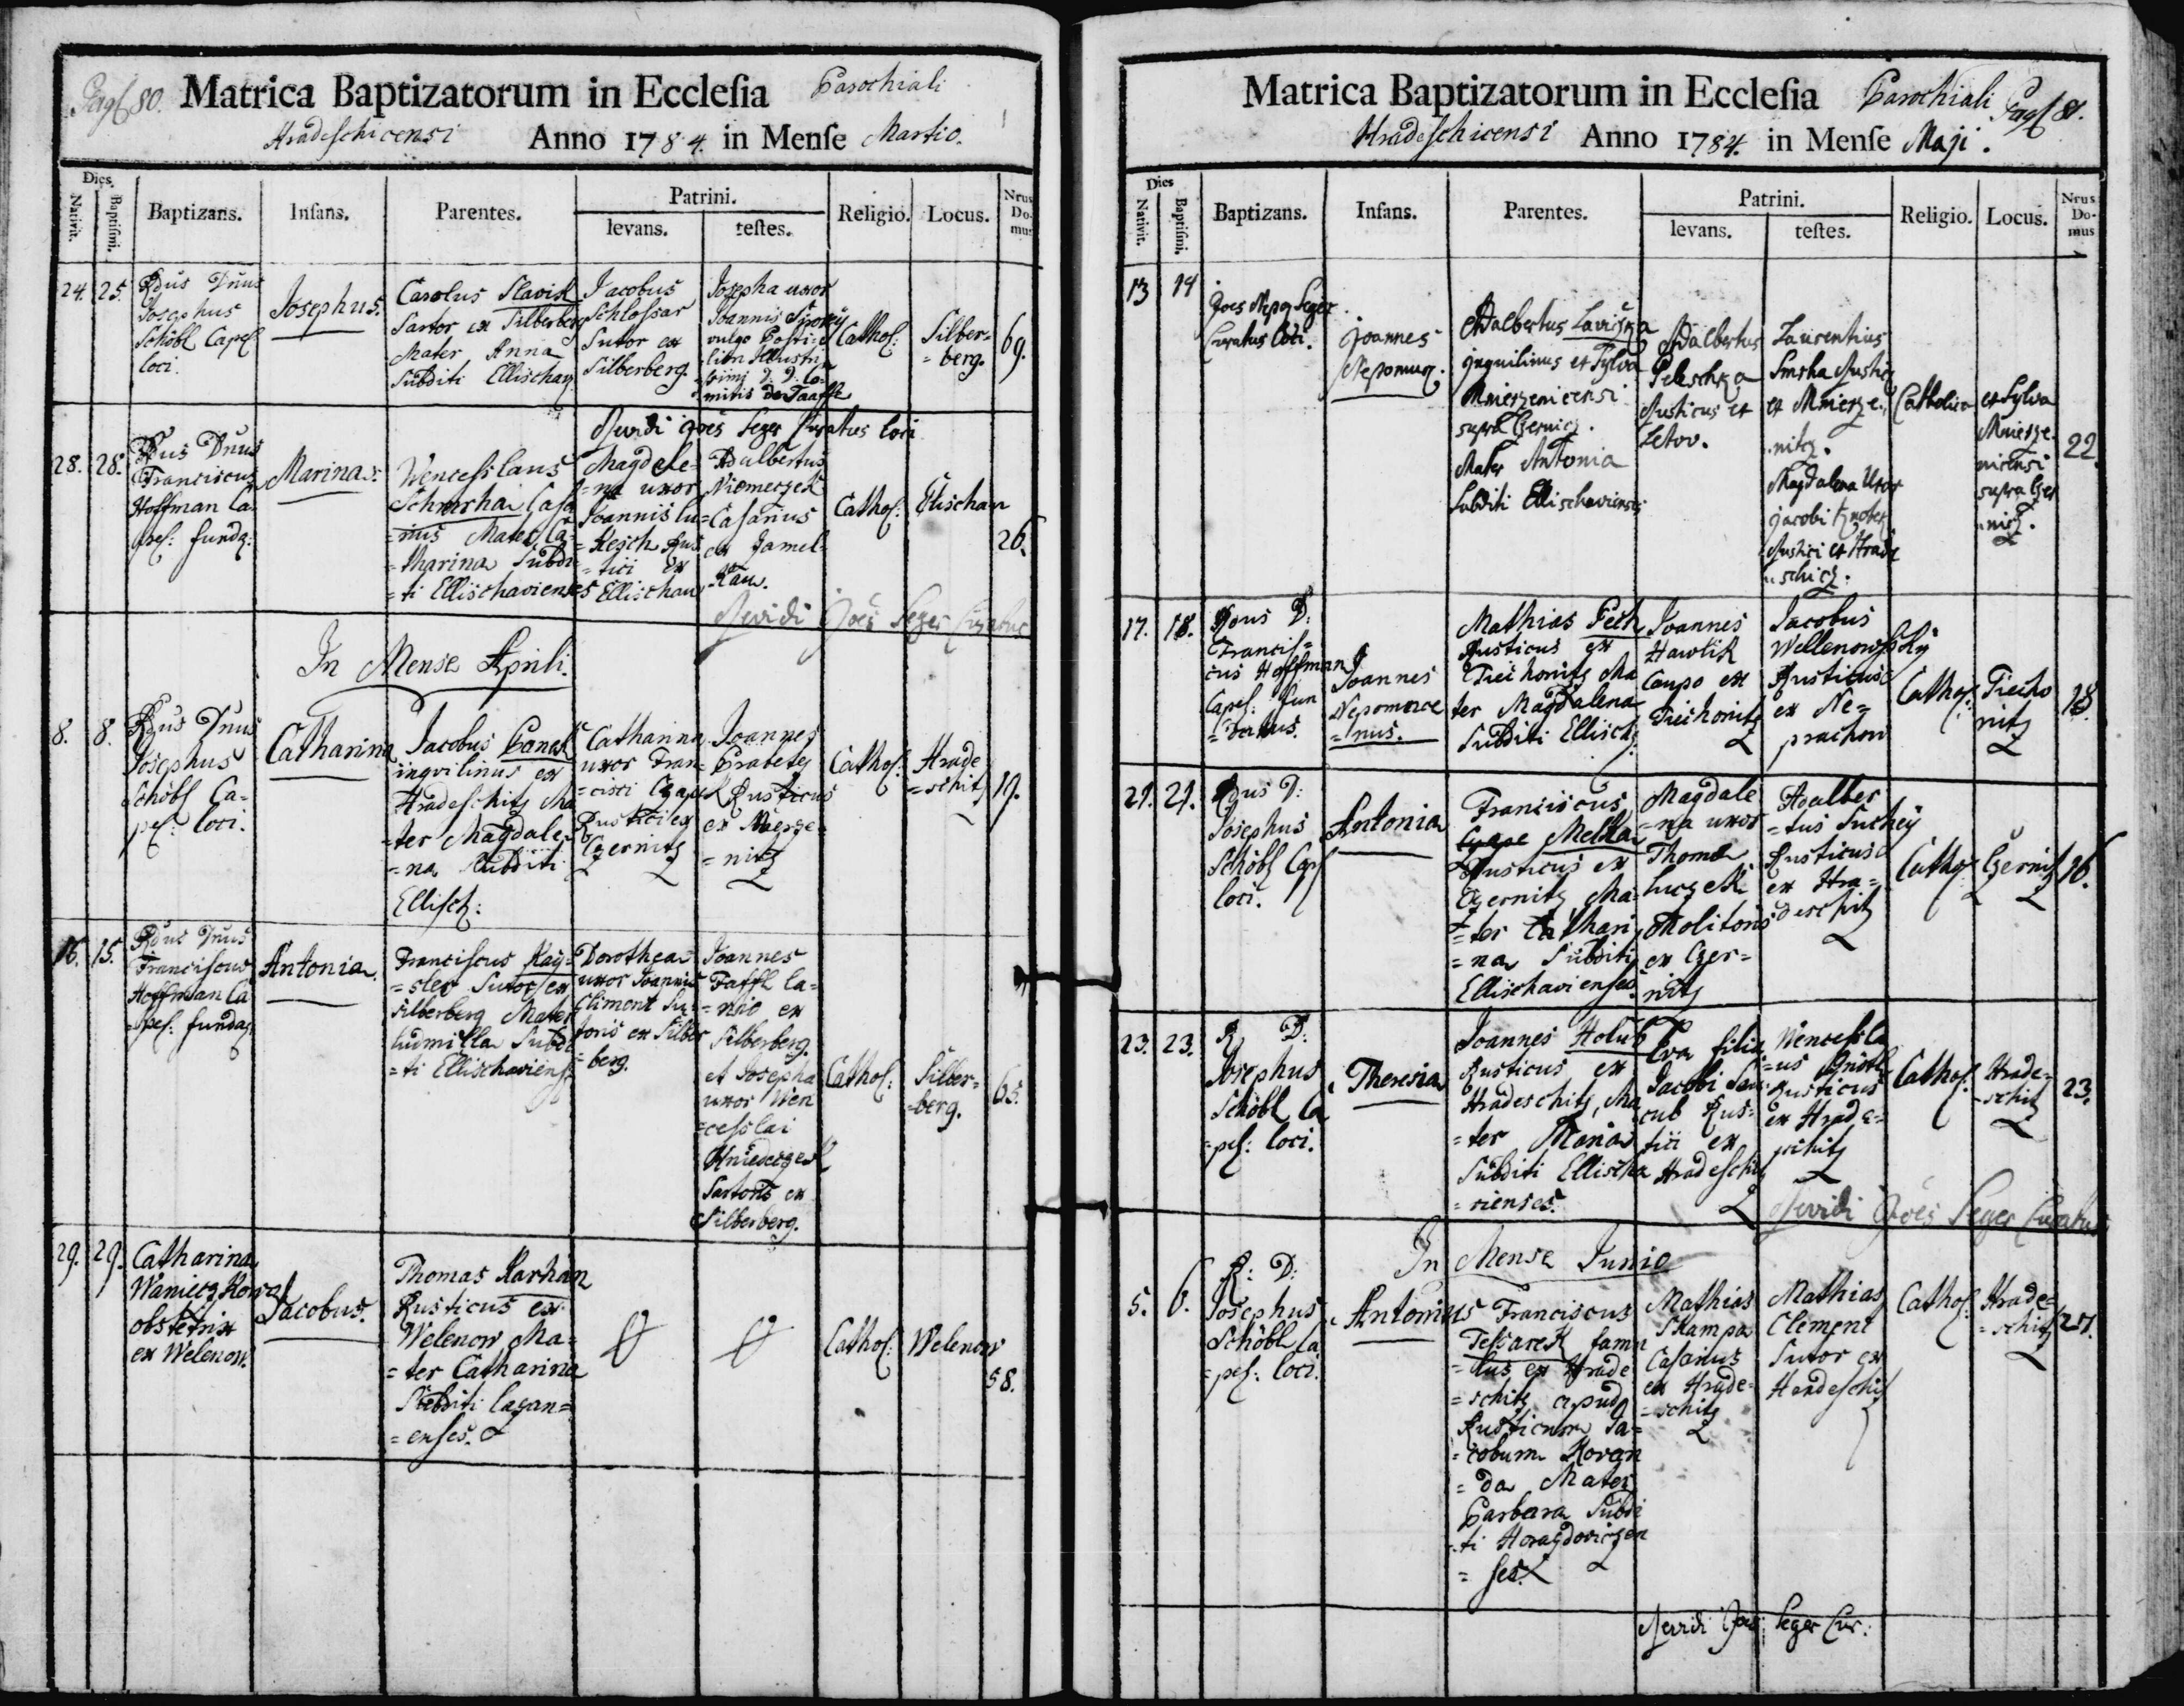 Pag 80. Matrica Baptizatorum in Ecclesia Parochiali
Hradeschicensi Anno 1784. in Mense Martio.
Dies.
Nativit. Baptismi. Baptizans. Infans. Parentes. Patrini. levans. testes. Religio. Locus. Nrus Do- mus
24. 25.
Rdus Dnus
Josephus
Schöbl Capel
loci.
Josephus.
Carolus Slavik
Sartor ex Silberberg
Mater Anna
Subditi Ellischav
Jacobus
Schlossar
Sutor ex
Silberberg.
Josepha uxor
Joannis
vulgo
Illustri-
ssimi D. D. Co-
mitis de Taaffe
Cathol:
Silber-
=berg.
69.
Revidi Joes Seger Curatus loci
28. 28.
Rdus Dnus
Franciscus
Hoffman Ca
pel: funda:
Marina.
Wenceslaus
Schmrha Casa
=rius Mater Ca-
=tharina Subdi
=ti Ellischavienses
Magdale-
=na uxor
Joannis Lu-
=kesch Rus
=tici ex
Ellischau
Adalbertus
Niemeczek
Casarius
ex Jamel-
=kau.
Cathol:
Ellischau
26.
Revidi Joes Seger Curatus
In Mense Aprili.
8. 8.
Rdus Dnus
Josephus
Schöbl Ca-
pel: loci.
Catharina
Jacobus Panek
inqvilinus ex
Hradeschitz Ma
=ter Magdale-
=na Subditi
Ellisch:
Catharina
uxor Fran-
=cisci Czapek
Rustici ex
Czernitz
Joannes
Brabetz
Rusticus
ex Mierze-
=nitz
Cathol:
Hrade
=schitz
19.
16. 15.
Rdus Dnus
Franciscus
Hoffman Ca
=pel: funda:
Antonia.
Franciscus Kay-
=sler Sutor ex
Silberberg Mater
Ludmilla Subdi
=ti Ellischaviens
Dorothea
uxor Joannis
Climent Su-
toris ex Silber
=berg.
Joannes
Taffl la-
=nio ex
Silberberg.
et Josepha
uxor Wen
=ceslai
Hniedeczek
Sartoris ex
Silberberg.
Cathol:
Silber-
=berg.
65.
29. 29.
Catharina
Waniecz Kowa
obstetrix
ex Welenow.
Jacobus.
Thomas Karhan
Rusticus ex
Welenow Ma-
=ter Catharina
Subditi Cazan=
=enses.
Cathol:
Welenow
58.
Matrica Baptizatorum in Ecclesia Parochiali Pag 81.
Hradeschicensi Anno 1784. in Mense Maji.
Dies
Nativit. Baptismi. Baptizans. Infans. Parentes. Patrini. levans. testes. Religio. Locus. Nrus Do- mus
13 14
Joes Nepo Seger
Curatus loci.
Joannes
Nepomuc.
Adalbertus Laviczka
Inquilinus et Sylva
Mnierzenicensi
supra Czernicz.
Mater Antonia
Subditi Ellischaviensis
Adalbertus
Peleschka
Rusticus et
Letov.
Laurentius
Smrha Rustic
et Mnierze-
nitz.
Magdalena Uxor
Jacobi
Rustici et Hrade
schicz.
Catholica
et Sylva
Mnierze-
nicensi
supra Czer
nicz.
22.
17. 18.
Rdus D:
Francis=
cus Hoffman
Capel: Fun
=datus.
Joannes
Nepomuce
=nus.
Mathias Pech
Rusticus ex
Tiechonitz Ma
ter Magdalena
Subditi Ellisch:
Joannes
Hawlik
Caupo ex
Tiechonitz
Jacobus
Wellenowsky
Rusticus
ex Ne-
prachow
Cathol:
Tiecho
nitz
18.
21. 21.
Rdus D:
Josephus
Schöbl Cap
loci.
Antonia
Franciscus
Melka
Rusticus ex
Czernitz Ma-
=ter Cathari
=na Subditi
Ellischavienses
Magdale
=na uxor
Thomæ
Luczek
Molitoris
ex Czer=
nitz
Adalber
=tus Suchey
Rusticus
ex Hra=
deschitz
Cathol:
Czernitz
16.
23. 23.
R. D:
Josephus
Schöbl Ca
=pel: loci.
Theresia
Joannes Holub
Rusticus ex
Hradeschitz, Ma
=ter Maria
Subditi Ellischa
=vienses.
Eva filia
Jacobi
cub Rus=
tici ex
Hradeschitz
Wencesla
=us
Rusticus
ex Hrade=
schitz
Cathol:
Hrade-
schitz
23.
Revidi Joes Seger Curatus
In Mense Junio
5. 6.
R: D:
Josephus
Schöbl Ca
=pel: loci.
Antonius
Franciscus
Tessarek famu
=lus ex Hrade
=schitz apud
Rusticum Ja=
=cobum Kovan
=da Mater
Barbara Subdi
=ti Horazdoviczen
=ses.
Mathias
Skampa
Casarius
ex Hrade-
=schitz
Mathias
Clement
Sutor ex
Hradeschitz
Cathol:
Hrade=
=schitz
27.
Revidi Joes Seger Cur: